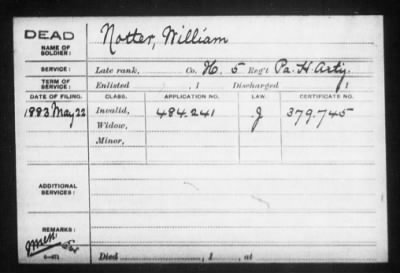 DEAD
NAME OF SOLDIER: Notter, William
SERVICE: Late rank, Co. H. 5 Reg't Pa. H. Arty.
TERM OF SERVICE: Enlisted , 1 Discharged 1
DATE OF FILING. CLASS. APPLICATION NO. LAW. CERTIFICATE NO.
1883 May 22 Invalid, 484.241 J 379.745
Widow,
Minor,
ADDITIONAL SERVICES:
REMARKS:
Died , 1 , at